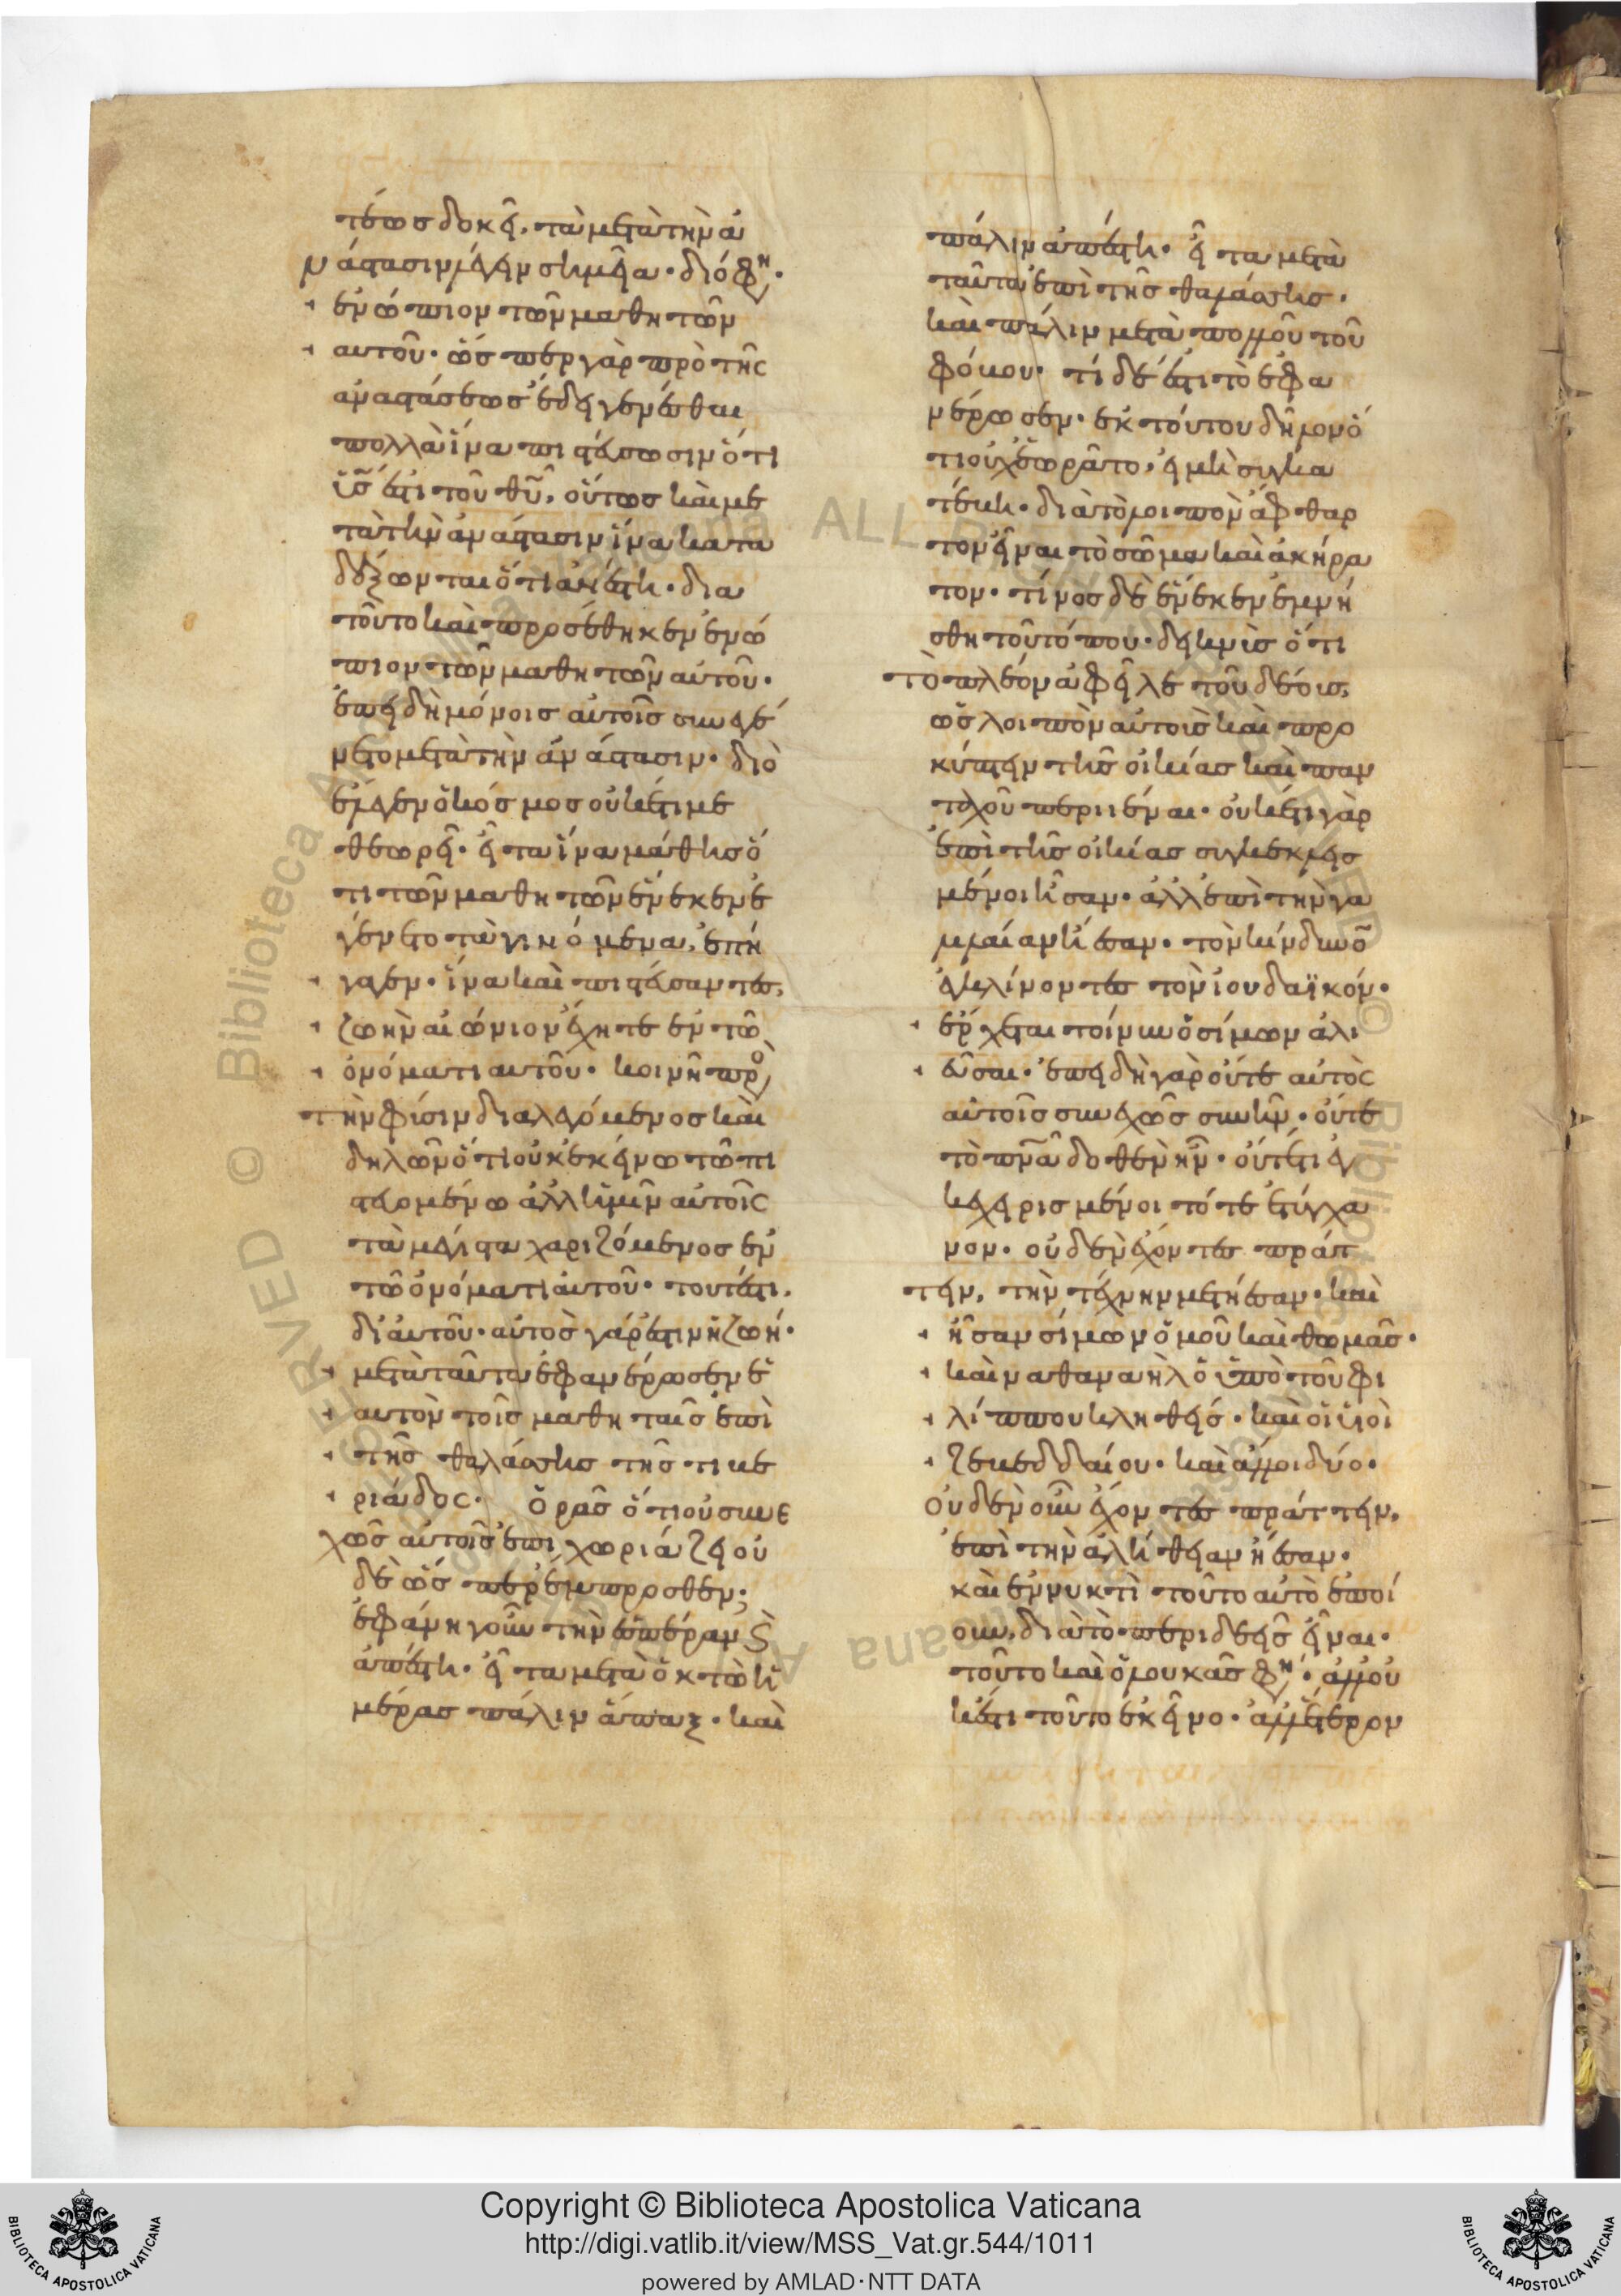 τέως δοκεῖ, τὰ μετὰ τὴν ἀ
νάστασιν λέγειν σημεῖα· διό φη·
ἐνώπιον τῶν μαθητῶν
αυτοῦ· ὥσπερ γὰρ πρὸ τῆς
αναστάσεως ἔδει γενέσθαι
πολλὰ ἵνα πιστεύσωσιν ὅτι
ϋς ἐστι τοῦ θυ, οὕτως καὶ με
τὰ τὴν ἀνάστασιν ἵνα κατα
δέξωνται ὅτι ἀνέστη· δια
τοῦτο καὶ προσέθηκεν ἐνώ
πιον τῶν μαθητῶν αὐτοῦ·
ἐπειδὴ μόνοις αὐτοῖς συνεγέ
νετο μετὰ τὴν ἀνάστασιν· διὸ
ἔλεγεν ὁ κόσμος οὐκέτι με
θεωρεῖ· εἶτα ἵνα μάθης ὅ
τι τῶν μαθητῶν ἕνεκεν ἐ
γένετο τὰ γινόμενα, ἐπή
γαγεν· ἵνα καὶ πιστεύσαντες,
ζωὴν αἰώνιον ἔχητε ἐν τῶ
ὀνόματι αυτοῦ· κοινῆ πρὸ
τὴν φύσιν διαλεγόμενος καὶ
δηλῶν ὅτι οὐκ ἐκείνω τῶ πι
στευομένω ἀλλ ἡμῖν αὐτοῖς
τὰ μέγιστα χαριζόμενος ἐν
τῶ ὀνόματι αυτοῦ· τουτέστι,
δι αυτοῦ· αὐτὸς γάρ ἐστιν ἡ ζωή·
μετὰ ταῦτα ἐφανέρωσεν ἑ
αυτὸν τοῖς μαθηταῖς ἐπὶ
τῆς θαλάσσης τῆς τιβε
ριάδος· ὁρᾶς ὅτι οὐ συνε
χῶς αὐτοῖς ἐπιχωριάζει οὐ
δὲ ὥσπερ ἔμπροσθεν;
ἐφάνη γοῦν τὴν ἑσπέραν καὶ
ἀπέστη· εἶτα μετὰ ὀκτὼ ἡ
μέρας πάλιν ἅπαξ· καὶ
πάλιν ἀπέστη· εἶτα μετὰ
ταῦτα ἐπὶ τῆς θαλάσσης·
καὶ πάλιν μετὰ πολλοῦ τοῦ
φόβου· τί δέ ἐστι τὸ ἐφα
νέρωσεν· ἐκ τούτου δῆλον ὅ
τι οὐχ ἑωρᾶτο, εἰ μὴ συγκα
τέβη· διὰ τὸ λοιπὸν ἄφθαρ
τον εἶναι τὸ σῶμα καὶ ἀκήρα
τον· τίνος δὲ ἕνεκεν ἐμνή
σθη τοῦ τόπου· δεικνὺς ὅτι
τὸ πλέον ἀφεῖλε τοῦ δέους,
ὡς λοιπὸν αὐτοὺς καὶ προ
κύπτειν τῆς οἰκίας καὶ παν
ταχοῦ περιιέναι· οὐκέτι γὰρ
ἐπὶ τῆς οἰκίας συγκεκλεις
μένοι ἦσαν· ἀλλ ἐπὶ τὴν γα
λιλαίαν ἤεσαν· τὸν κίνδυνο
ἐκκλίνοντες τὸν ἰουδαϊκόν·
ἔρχεται τοίνυν ὁ σίμων ἁλι
εῦσαι· ἐπειδὴ γὰρ οὔτε αὐτὸς
αὐτοῖς συνεχῶς συνῆν· οὔτε
τὸ πνα δοθὲν ἦν· οὔτέ τι ἐγ
κεχειρισμένοι τότε ἐτύγχα
νον· οὐδὲν ἔχοντες πράτ
τειν, τὴν τέχνην μετήεσαν· καὶ
ἦσαν σίμων ὁμοῦ καὶ θωμᾶς·
καὶ ναθαναὴλ ὁ ὑπὸ τοῦ φι
λίππου κληθείς· καὶ οἱ ϋιοὶ
ζεβεδδαίου· καὶ ἄλλοι δύο·
οὐδὲν οὖν ἔχοντες πράττειν,
ἐπὶ τὴν ἁλιείαν ἤεσαν·
καὶ ἐν νυκτὶ τοῦτο αὐτὸ ἐποί
ουν, διὰ τὸ περιδεεῖς εἶναι·
τοῦτο καὶ ὁ λουκᾶς φη· ἀλλ οὐ
κέστι τοῦτο ἐκεῖνο· ἀλλ ἕτερον
Copyright © Biblioteca Apostolica Vaticana
http://digi.vatlib.it/view/MSS_Vat.gr.544/1011
powered by AMLAD·NTT DATA